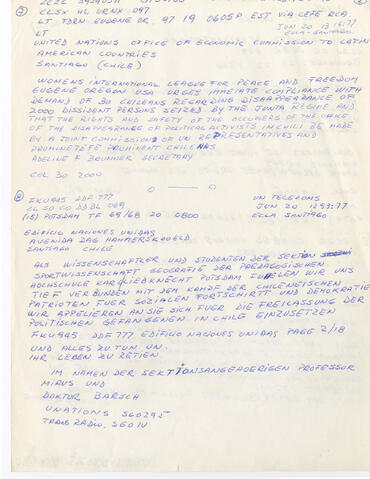 ⑦ ZCZC
CLSX NL ORNX 097
LT TDRN EUGENE OR, 97 19 0605P EST VIA CEFE RCA
LT JUN 20 13:16:77
UNITED NATIONS OFFICE OF ECONOMIC COMMISSION TO LATIN
ECLA-SANTIAGO.
AMERICAN COUNTRIES
SANTIAGO (CHILE)
WOMENS INTERNATIONAL LEAGUE FOR PEACE AND FREEDOM
EUGENE OREGON USA URGES IMMEIATE COMPLIANCE WITH
DEMAND OF 30 CHILEANS REGARDING DISAPPEARANCE OF
2000 DISSIDENT PERSONS SEIZED BY THE JUNTA REGIME AND
THAT THE RIGHTS AND SAFETY OF THE OCCUPIERS OF THE OFFICE
OF THE DISAPPEARANCE OF POLITICAL ACTIVISTS IN CHILI BE MADE
BY A JOINT COMMISSION OF UN REPRESENTATIVES AND
PROMINETEFE PROMINENT CHILEANS
ADELINE F BOUNNER SECRETARY
COL 30 2000
⑧ FKU945 DDF 777 UN TELECOMS
CL SO CO DDBL 069 JUN 20 1293:77
(18) POTSDAM TF 69/68 20 0800 ECLA SANTIAGO
EDIFICIO NACIONES UNIDAS
AVENIDA DAG HAMMERSHOELD
SANTIAGO CHILE
ALS WISSENSCHAFTLER UND STUDENTEN DER SEKTION
SPORTWISSENSCHAFT GEOGRAFIE DER PAEDAGOGISCHEN
HOCHSCHULE KARLIEBKNECHT POTSDAM FUEHLEN WIR UNS
TIEF VERBUNDEN MIT DEM KAMPF DER CHILENETISCHEN
PATRIOTEN FUER SOZIALEN FORTSCHRITT UND DEMOKRATIE
WIR APPELIEREN AN SIE SICH FUER DIE FREILASSUNG DER
POLITISCHEN GEFANGENEN IN CHILE EINZUSETZEN
FKU945 DDF 777 EDIFICIO NACIONES UNIDAS PAGE 2/18
UND ALLES ZU TUN UN.
IHR LEBEN ZU RETIEN
IM NAMEN DER SEKTIONSANGEHOERIGEN PROFESSOR
MIRUS UND
DOKTOR BARSCH
UNATIONS SGO295
TRANS RADIO, SGO IV